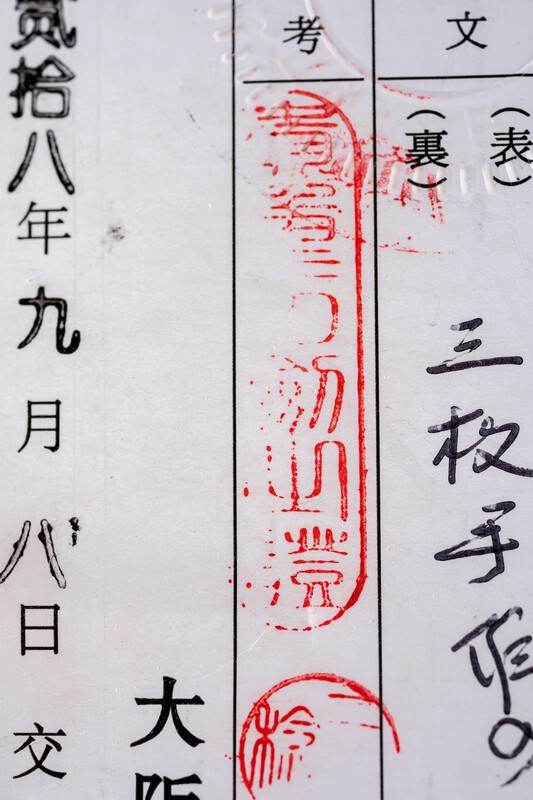 文
(表)
(裏)
三枚手作の
考
検
大阪
貳拾八年九月八日交